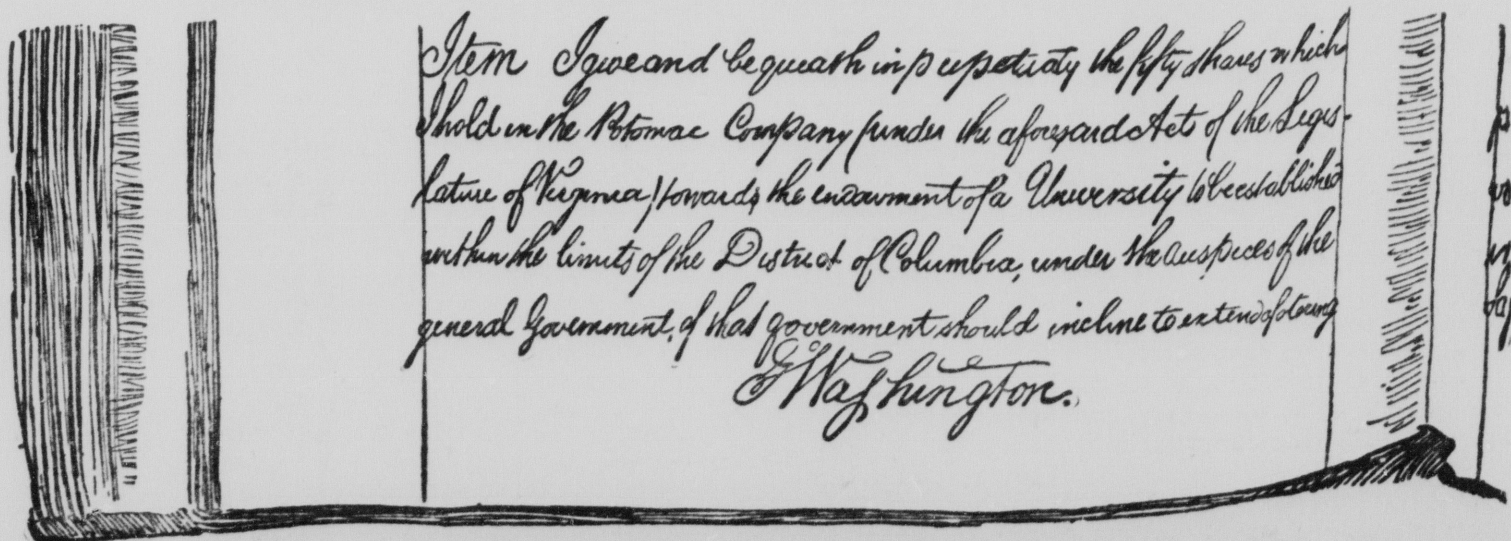 Item I give and bequeath in perpetuaty the fifty shares which
I hold in the Potomac Company (under the aforesaid Acts of the Legis-
lature of Virginia) towards the endowment of a University to be established
within the limits of the District of Columbia, under the auspices of the
general Government, if that government should incline to extend a fostering
G Washington.